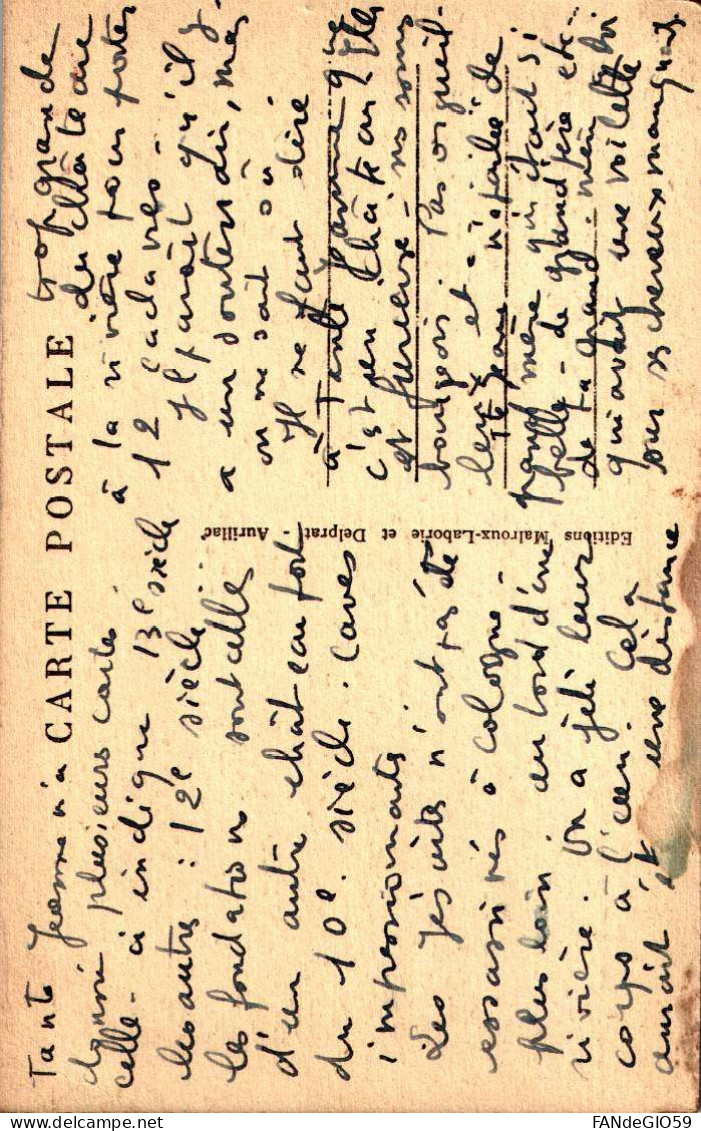 CARTE POSTALE
Tante Jeanne m'a
donné plusieurs cartes.
celle-ci indique 13e siècle
les autres : 12e siècle
les fondations sont celles
d'un autre château fort
du 10e. siècle. Caves
impressionnantes
Les Jésuites n'ont pas été
assassinés à Cologne -
plus loin au bord d'une
rivière. On a jeté leur
corps à l'eau. Cela
aurait été une distance
Editions Malroux-Laborie et Delprat - Aurillac
trop grande
du château
à la rivière pour porter
12 cadavres -
Il paraît qu'il y
a un souterrain, mais
on ne sait où
Il ne faut dire
à Tante Jeanne que
c'est peu château. Elle
est furieuse - nous sommes
bourgeois. Pas orgueil-
leux et
Te parle de
grand mère qui était si
belle - de grand père etc...
de ta grand mère
qui avait une voilette
sur ses cheveux